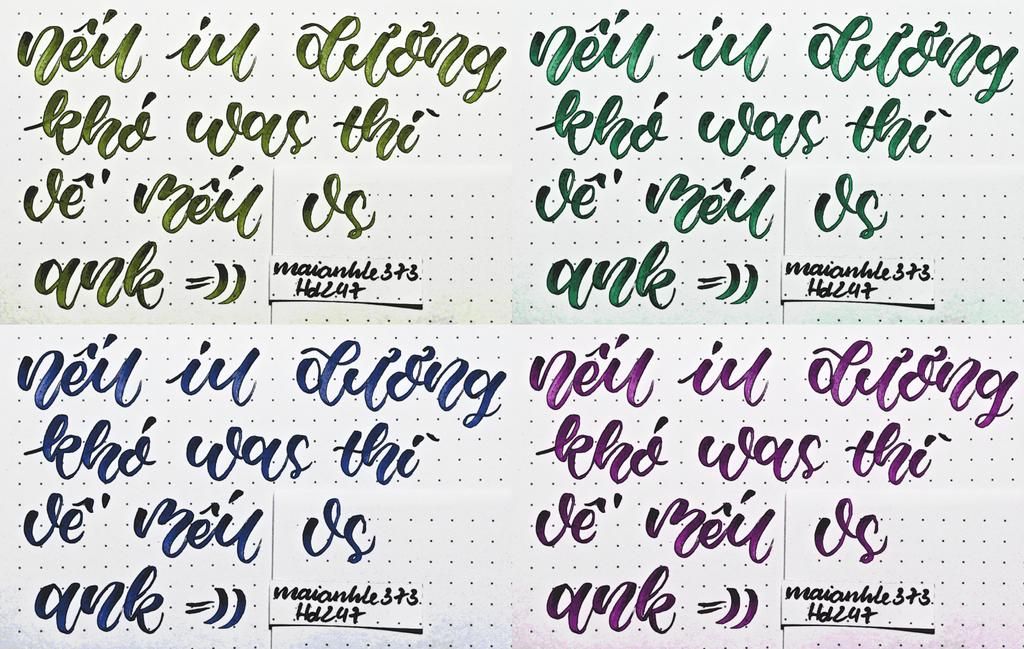 nếu iu đương
khó was thì
về mếu vs
ank =))
maianhle373
nếu iu đương
khó was thì
về mếu vs
ank =))
maianhle373
nếu iu đương
khó was thì
về mếu vs
ank =))
maianhle373
nếu iu đương
khó was thì
về mếu vs
ank =))
maianhle373